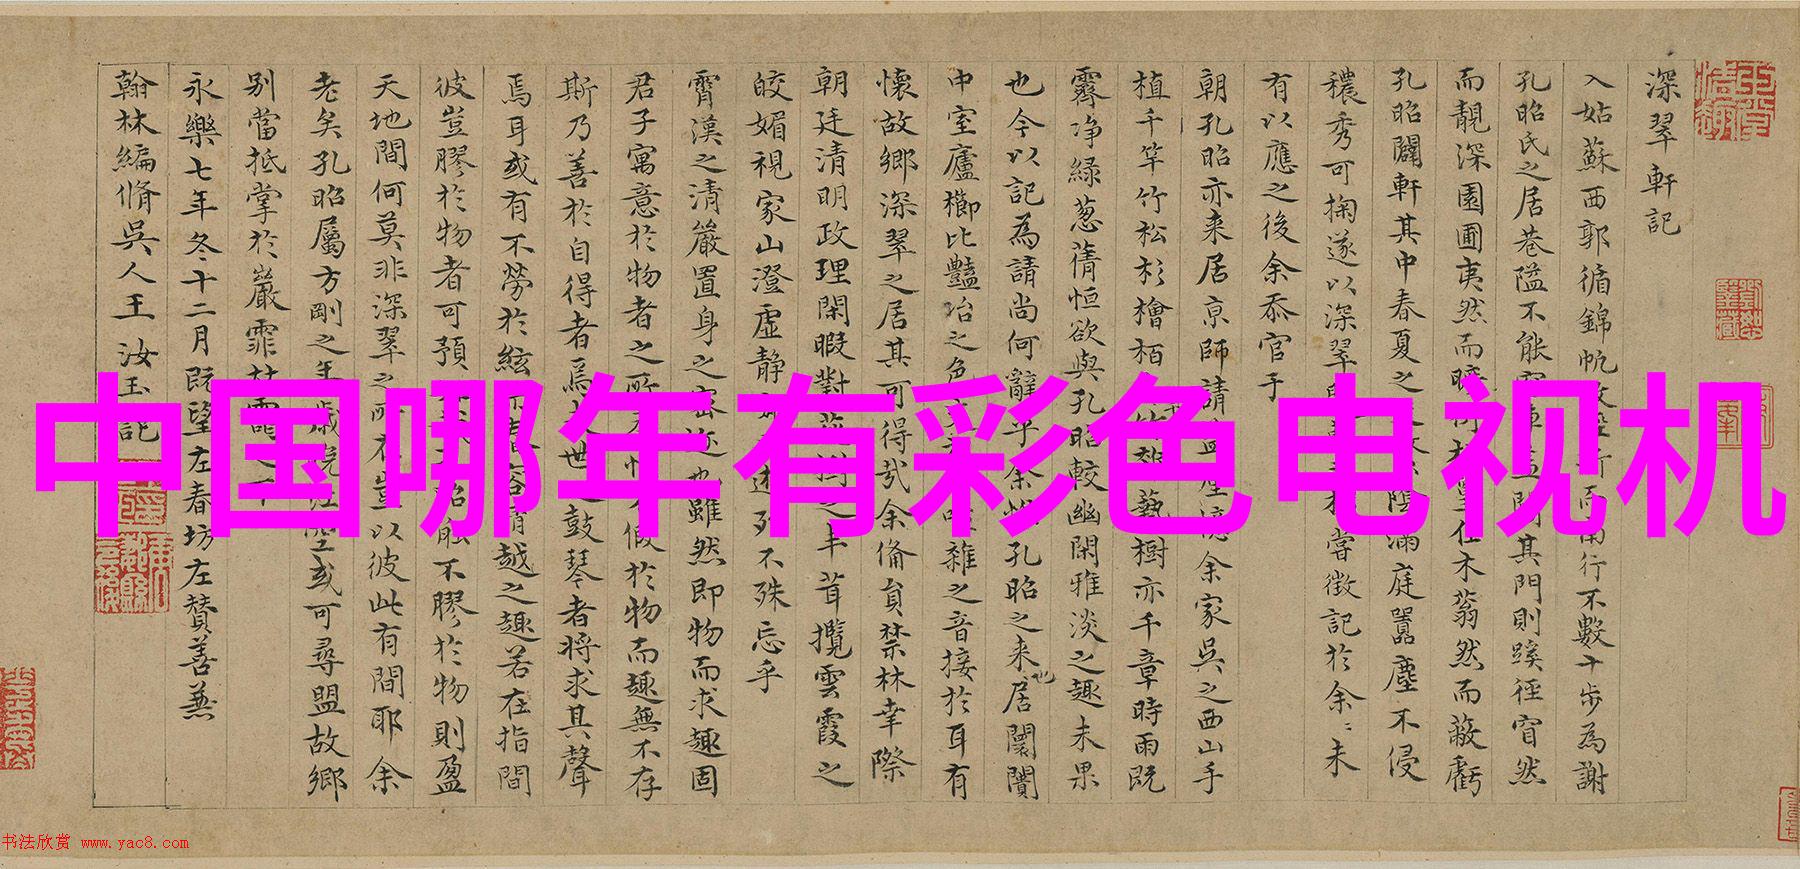 深翠軒記
入姑蘇西郭循錦帆
行不數十步為謝
孔昭氏之居巷隘不能
其門則蹊徑窅然
而靚深園圃夷然而
木蓊然而蔽虧
孔昭闢軒其中春夏之
滿庭囂塵不侵
穠秀可掬遂以深翠
嘗徵記於余余未
有以應之後余忝官于
朝孔昭亦来居京師請
余家吳之西山手
植千竿竹松杉檜栢
樹亦千章時雨既
霽净緑葱蒨恒欲與孔昭較幽閑雅淡之趣未果
也今以記為請尚何辭乎余
孔昭之来居也闤闠
中室廬櫛比豔冶之色
雜之音接於耳有
懷故鄉深翠之居其可得哉余偹員禁林幸際
朝廷清明政理閑暇對
茸攬雲霞之
皎媚視家山澄虚静
不殊忘乎
霄漢之清嚴置身之宻迩也雖然即物而求趣固
君子寓意於物者之所
假於物而趣無不存
斯乃善於自得者焉
世
鼓琴者将求其聲
焉耳或有不勞於絃
越之趣若在指間
彼豈膠於物者可預
不膠於物則盈
天地間何莫非深翠之所在豈以彼此有間耶余
老矣孔昭屬方剛之年
或可尋盟故鄉
别當抵掌於巖霏
永樂七年冬十二月既望左春坊左贊善兼
翰林編脩吳人王汝玉記
中国哪年有彩色电视机
书法欣赏 www.yac8.com